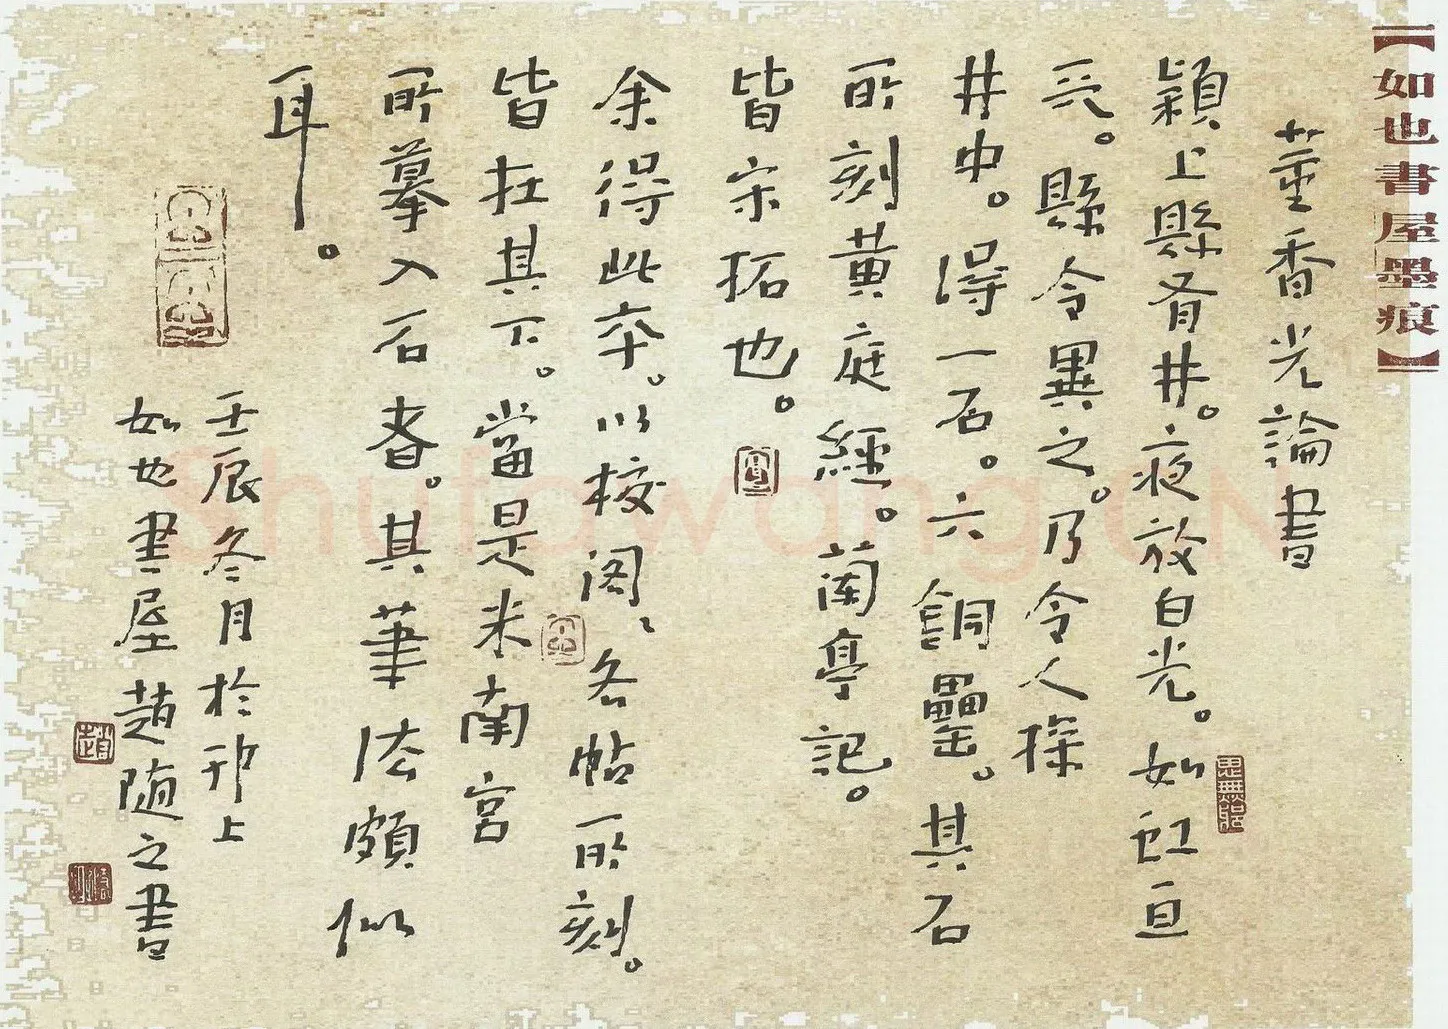 【如也書屋墨痕】
董香光論書
穎上縣有井。夜放白光。如虹亘
天。縣令異之。乃令人探
井中。得一石。六銅罍。其石
所刻黃庭經。蘭亭記。
皆宋拓也。
余得此本。以校阁、各帖所刻。
皆在其下。當是米南宮
所摹入石者。其筆法頗似
耳。
壬辰冬月於邗上
如也書屋趙随之書
趙
Shufawang.CN